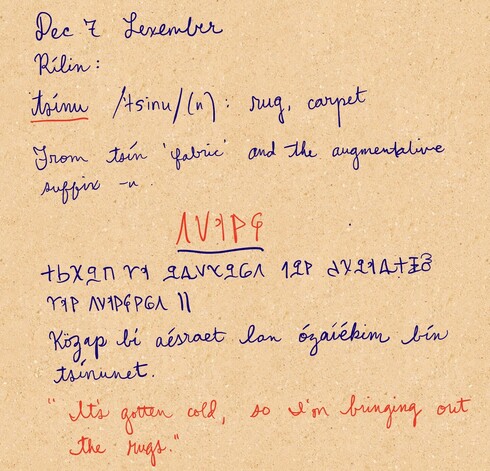 Dec 7 Lexember
Rílin:
tsínu /ˈtsinu/ (n): rug, carpet
From tsín 'fabric' and the augmentative
suffix -u.
Közap bí aésraet lan ózaíékim bín
tsínunet.
"It's gotten cold, so I'm bringing out
the rugs."